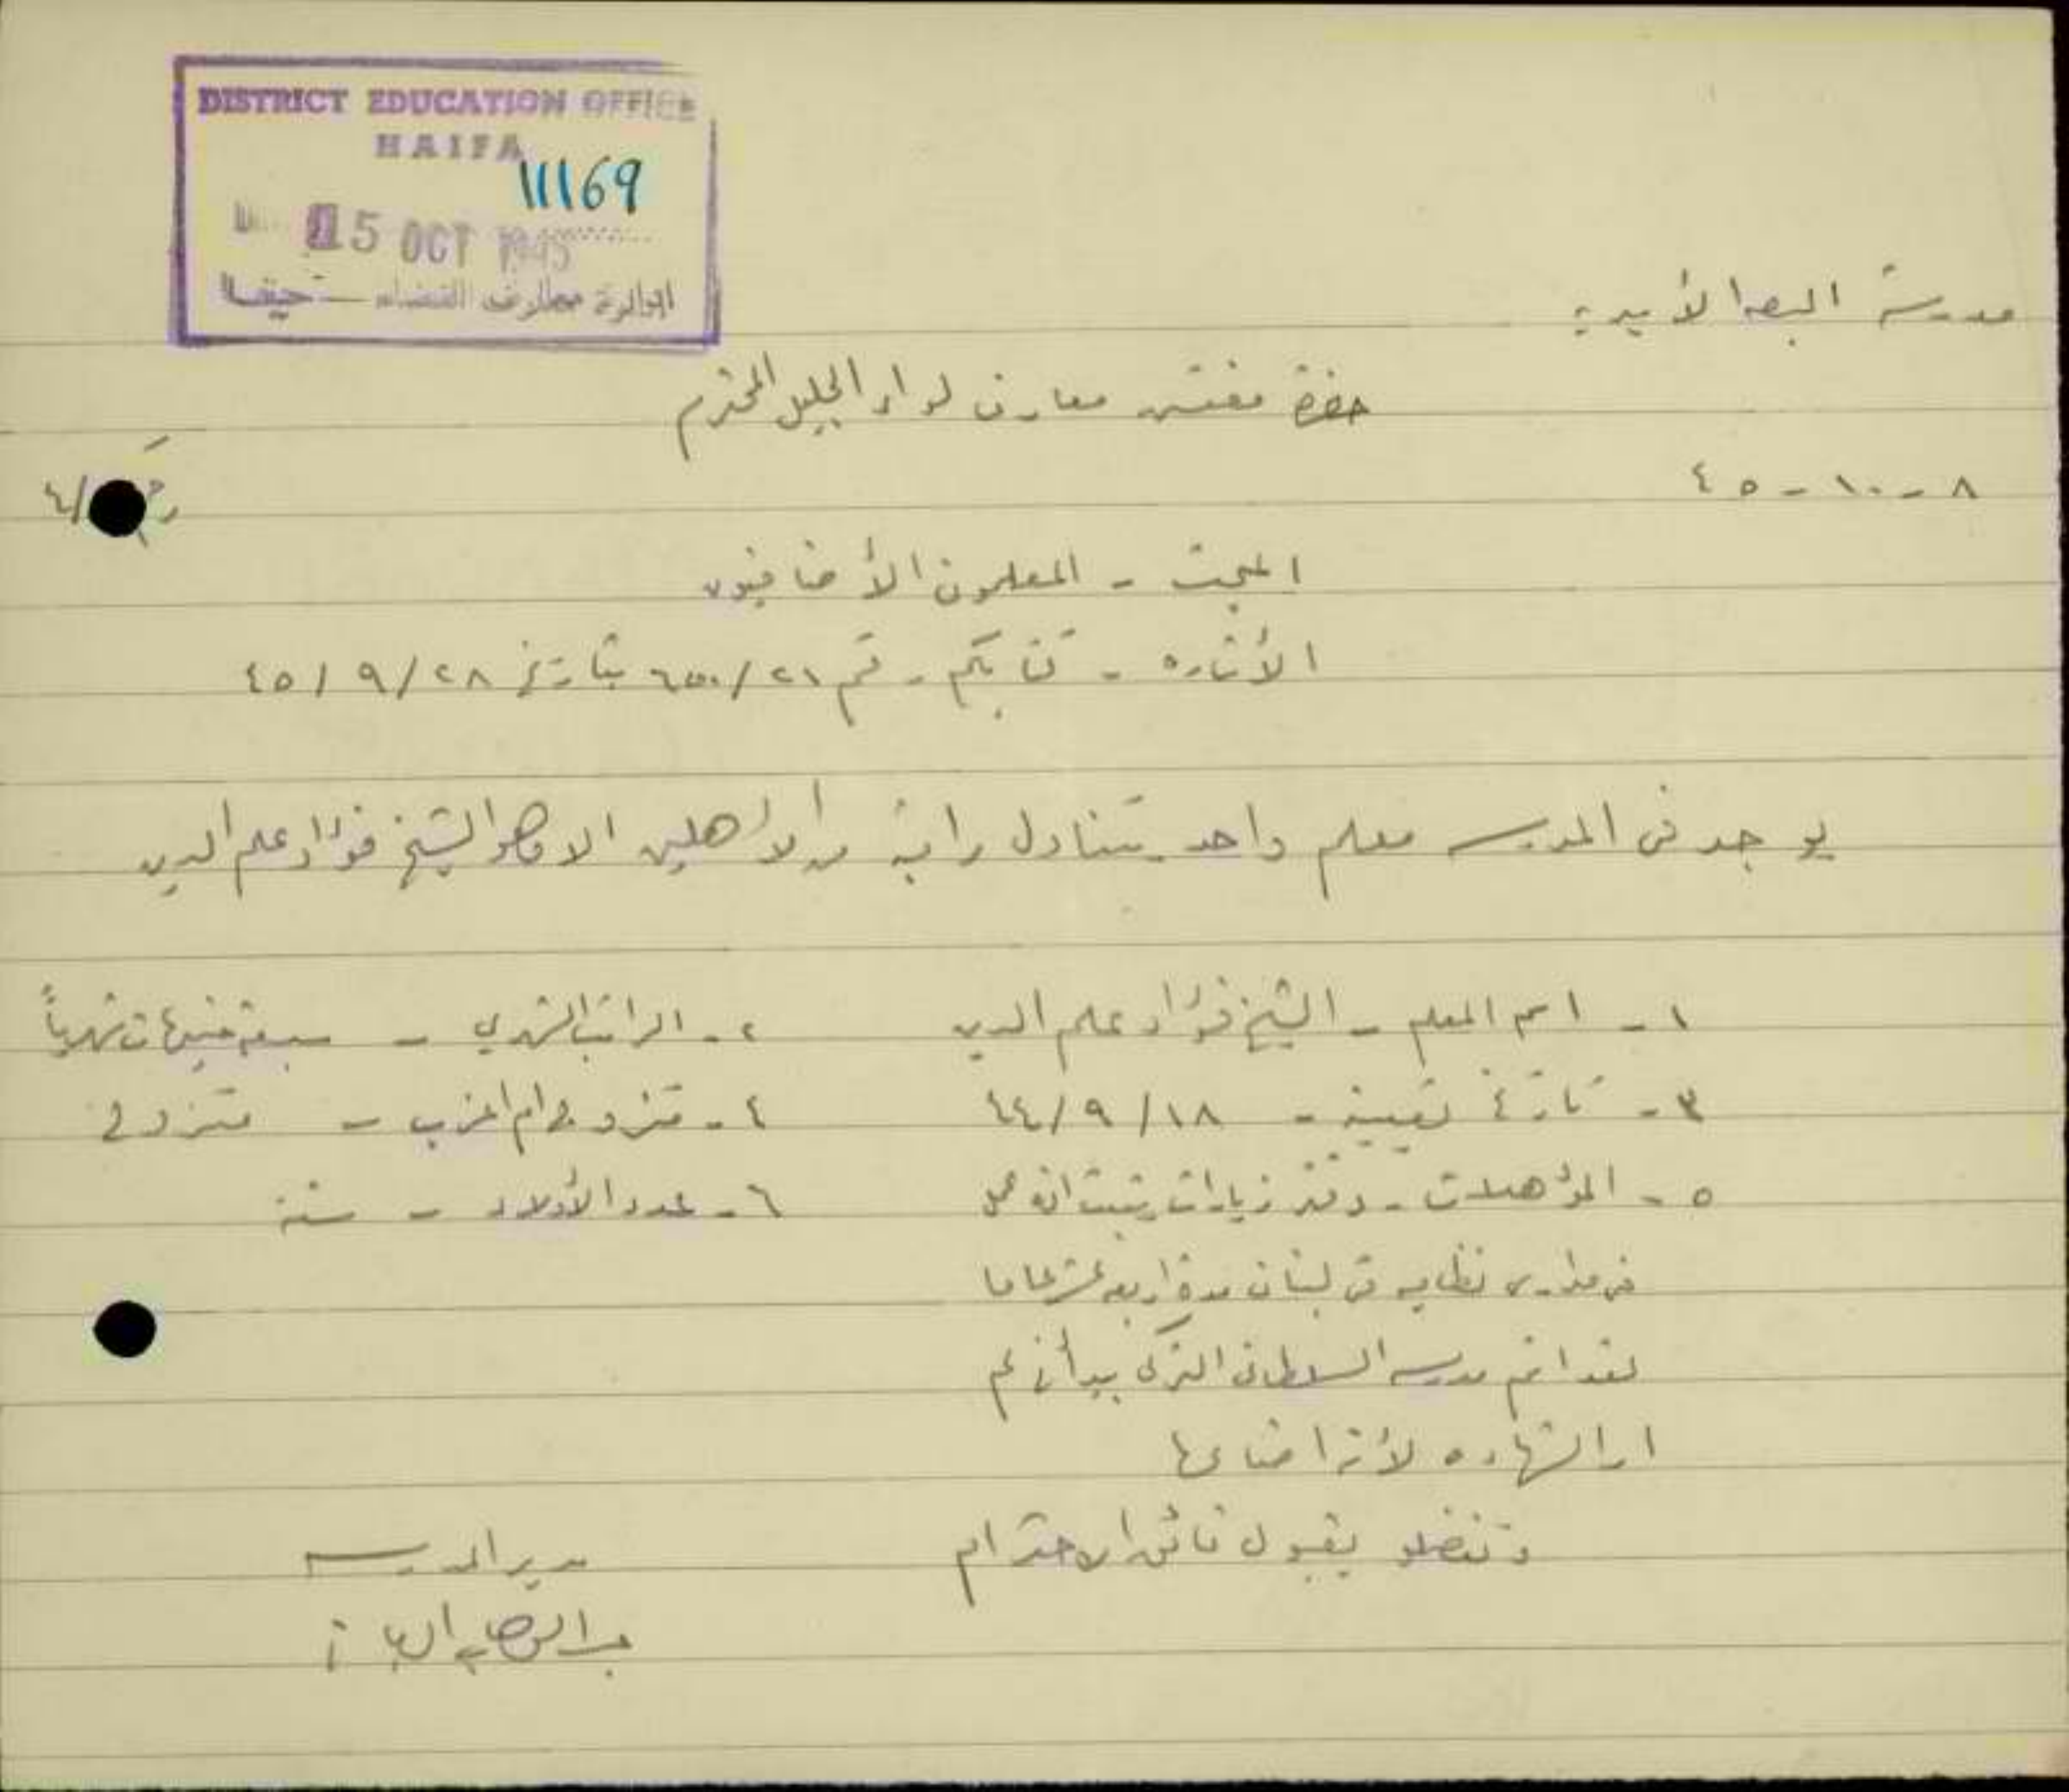 DISTRICT EDUCATION OFFICE
HAIFA
11169
15 OCT 1945
دائرة معارف القضاء - حيفا
مدرسة البصه الأميريه
حضرة مفتش معارف لواء الجليل المحترم
٨ - ١٠ - ٤٥
المبحث - المعلمون الأضافيون
الأشاره - كتابكم رقم ٢١/ بتاريخ ٢٨/ ٩/ ٤٥
يوجد في المدرسه معلم واحد يتناول راتبه من الأهلين الا وهو الشيخ فؤاد علم الدين
١ - اسم المعلم - الشيخ فؤاد علم الدين
٢ - الراتب الشهري - سبعة جنيهات شهرياً
٣ - تاريخ تعيينه - ١٨/ ٩/ ٤٤
٤ - متزوج ام اعزب - متزوج
٥ - المؤهلات - دفتر زيارات يثبت انه عمل
٦ - عدد الأولاد - ستة
في مدارس نظاميه في لبنان مدة اربعة عشر عاما
لقد اتم مدرسه السلطاني التركي بيد أني لم
ار الشهاده لأنه اضاعها
وتفضلو بقبول فائق الاحترام
مدير المدرسه
عبد